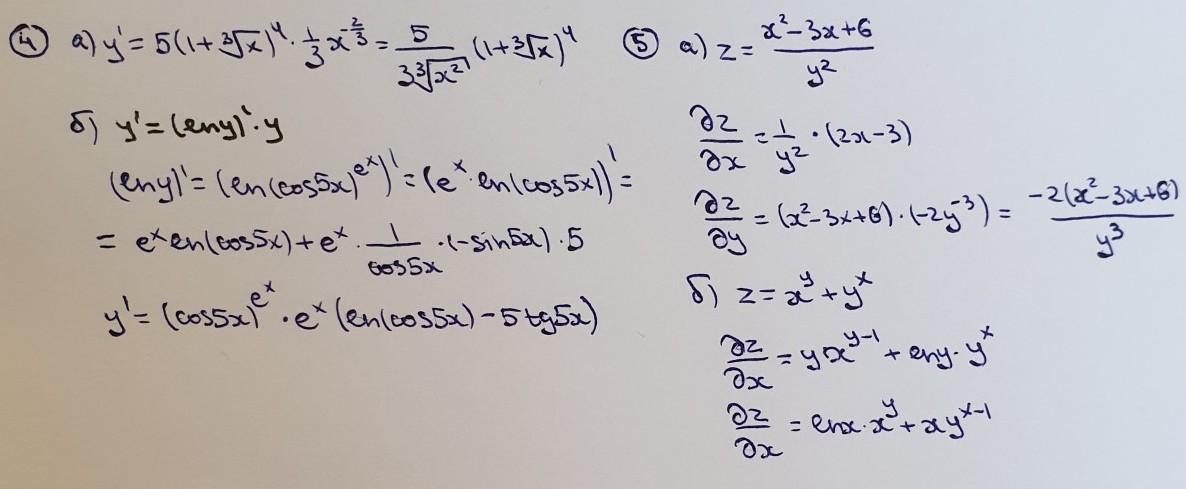 ④ а) y' = 5(1+∛x)⁴ · 1/3 x^(-2/3) = 5/(3∛x²) (1+∛x)⁴
б) y' = (lny)' · y
(lny)' = (ln(cos5x)^(e^x))' = (e^x · ln(cos5x))' =
= e^x ln(cos5x) + e^x · 1/cos5x · (-sin5x) · 5
y' = (cos5x)^(e^x) · e^x (ln(cos5x) - 5tg5x)
⑤ а) z = (x²-3x+6)/y²
∂z/∂x = 1/y² · (2x-3)
∂z/∂y = (x²-3x+6) · (-2y⁻³) = -2(x²-3x+6)/y³
б) z = x^y + y^x
∂z/∂x = yx^(y-1) + lny · y^x
∂z/∂x = lnx · x^y + xy^(x-1)